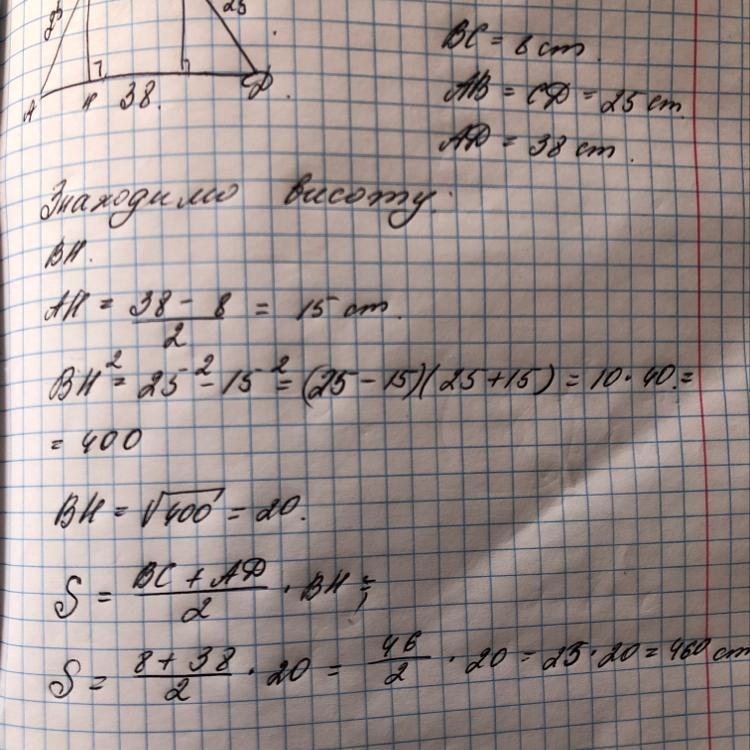 25
A H 38. D
BC = 8 cm.
AB = CD = 25 cm.
AD = 38 cm.
Знаходимо висоту:
BH.
AH = (38 - 8)/2 = 15 cm.
BH² = 25² - 15² = (25 - 15)(25 + 15) = 10 · 40 =
= 400
BH = √400 = 20.
S = (BC + AD)/2 · BH =
S = (8 + 38)/2 · 20 = 46/2 · 20 = 23 · 20 = 460 cm